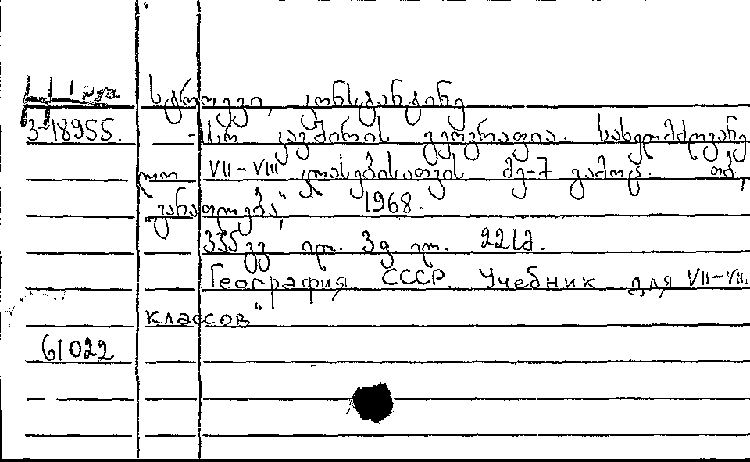 კონსტანტინე
3-18955. -სრ კავშირის გეოგრაფია. სახელმძღვანე
ლო VII-VIII კლასებისათვის მე-7 გამოც. თბ.,
"განათლება", 1968.
335 გვ. ილ. 22
География СССР. Учебник для VII-VII.
классов"
61022